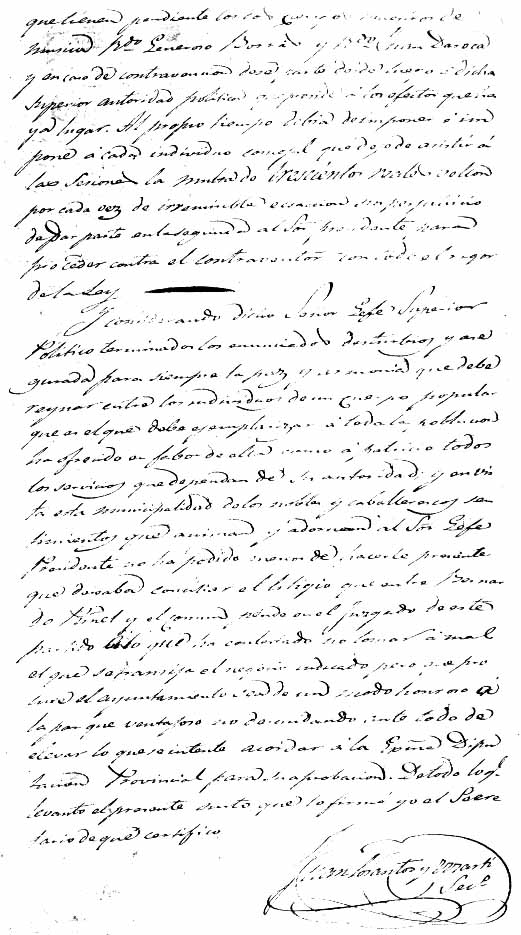 que tienen pendiente los dos Cuerpos de
musica Pdo. Generoso Borrás y Pdo. Juan Daroca
y en caso de contravencion dese parte desde luego á dicha
Superior autoridad politica qe. aprende á los efectos que ha
ya lugar. Al propio tiempo debia de imponer é im
pone á cada individuo consejal que deje de asistir á
las Sesiones la multa de trescientos reales vellon
por cada vez de irremisible ecsaccion sin perjuicio
de dar parte en la seguida al Sor. presidente para
proceder contra el contraventor con todo el rigor
de la Ley.
Y considerando dicho Señor Gefe Superior
Politico terminados los enunciados disturbios y ase
gurada para siempre la paz y armonia que debe
reynar entre los individuos de un cuerpo popular
que es el que debe ejemplarizar á toda la poblacion
ha ofrecido en fabor de ella como á patricio todos
los servicios que dependan de su autoridad; y en vis
ta esta municipalidad de los nobles y caballerosos sen
timientos que animan y adornan al Sor. Gefe
Presidente no ha podido menos de hacerle presente
que deseaba conciliar el litigio que entre Bernar
do y el comun pende en el juzgado de este
partido á lo que ha contestado no tomar á mal
el que se transija el negocio indicado pero que pro
cure el ayuntamiento sea de un modo honroso á
la par que ventajoso no descuidando ante todo de
elevar lo que se intente acordar á la Exma. Dipu
tacion Provincial para su aprobacion. De todo lo qe.
levanto el presente auto que lo firmé yo el Secre
tario de que certifico
Juan Lorantes y Marti
Seco.